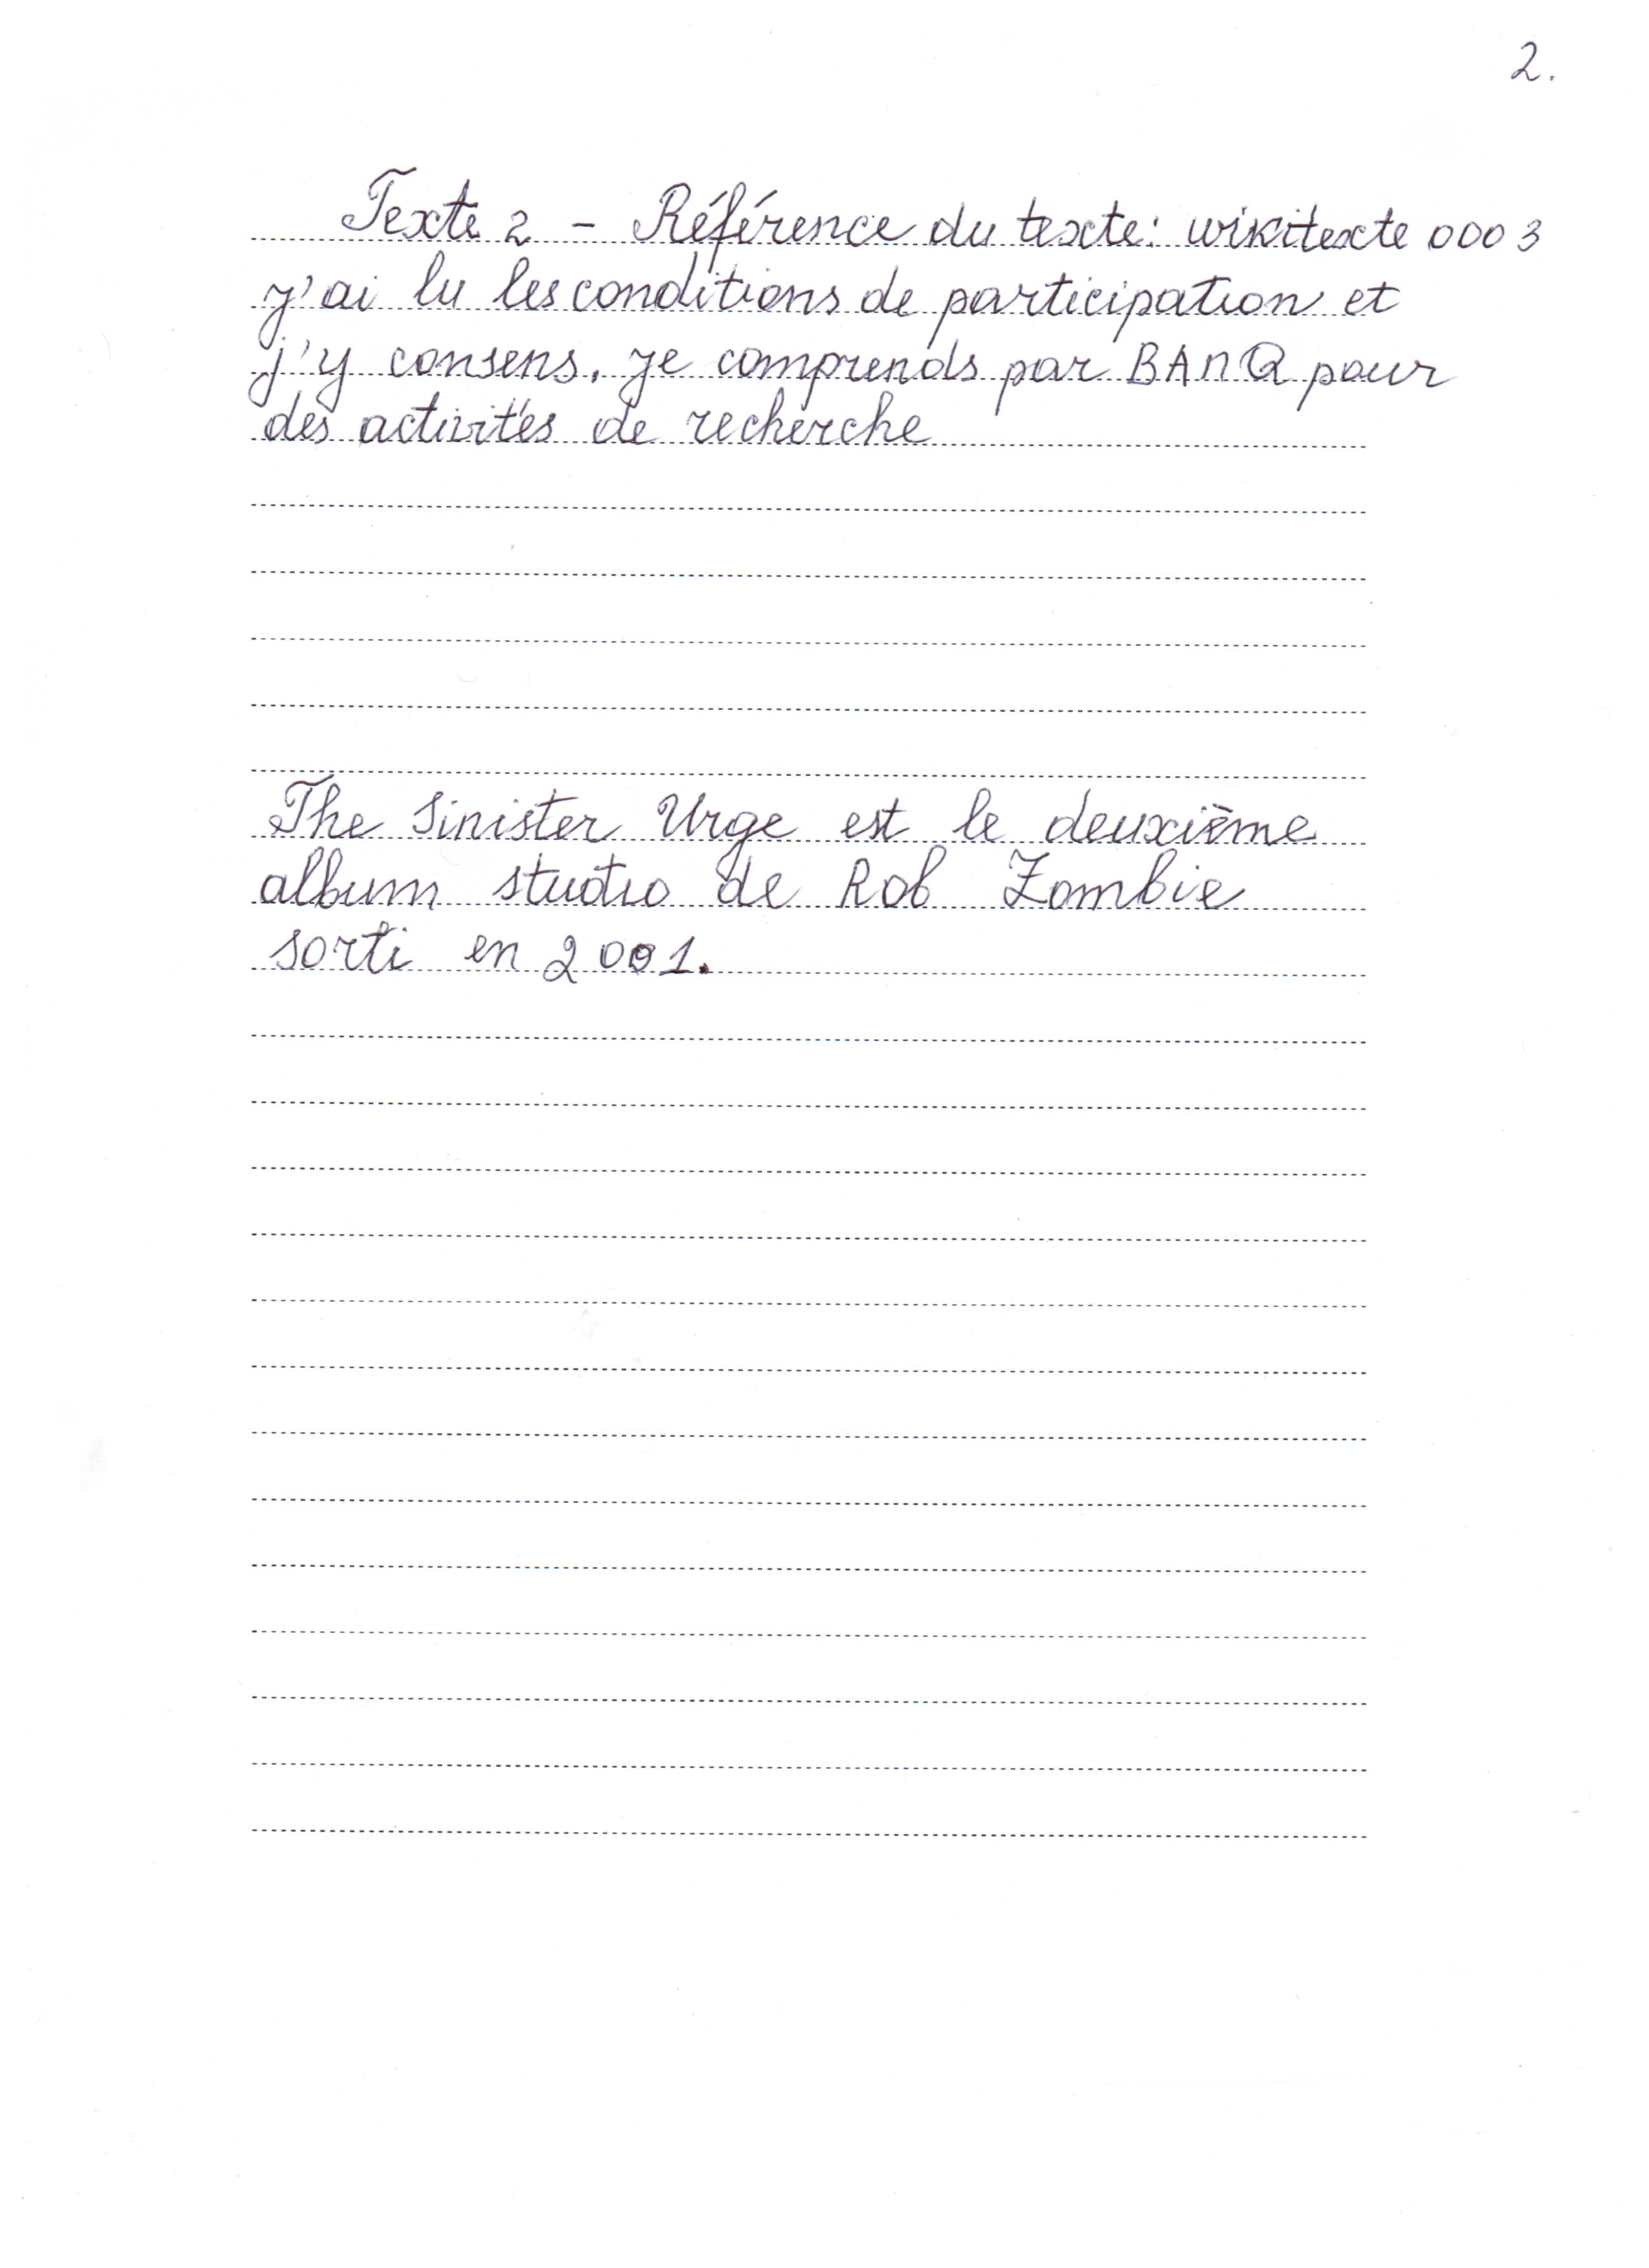 2.
Texte 2 - Référence du texte: wikitexte 0003
j'ai lu les conditions de participation et
j'y consens. je comprends par BAnQ pour
des activités de recherche
The Sinister Urge est le deuxième
album studio de Rob Zombie
sorti en 2001.